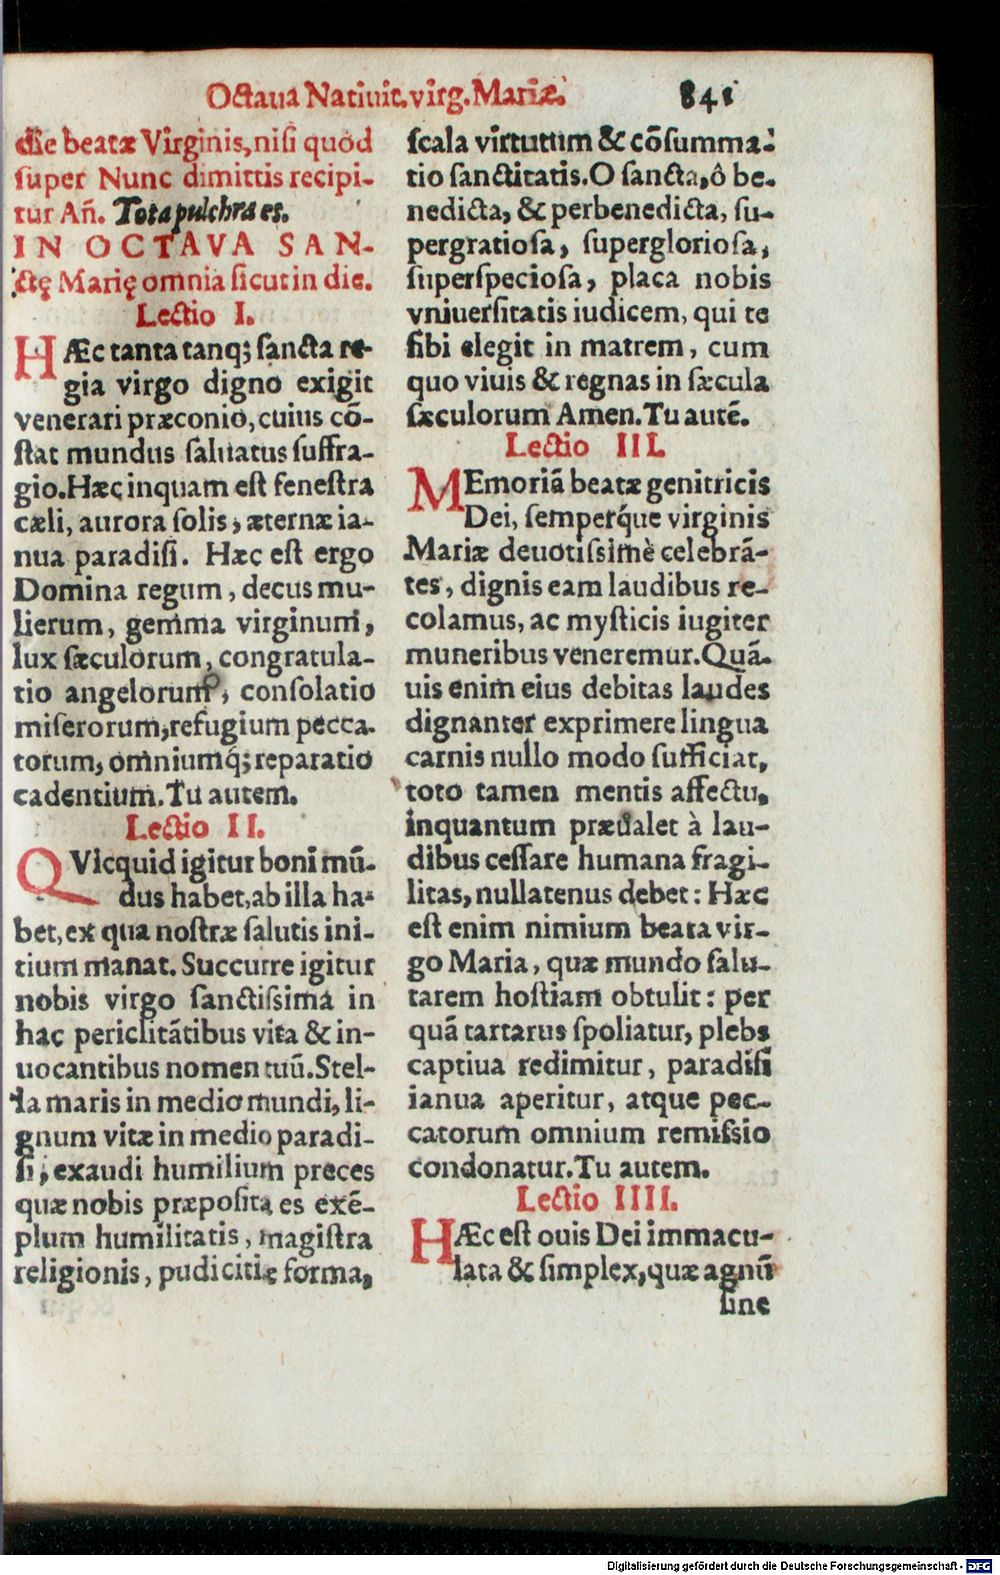 Octaua Natiuit. virg. Mariæ. 841
die beatæ Virginis, nisi quod
super Nunc dimittis recipi-
tur Añ. Tota pulchra es.
IN OCTAVA SAN-
ctę Marię omnia sicut in die.
Lectio I.
HÆc tanta tanq; sancta re-
gia virgo digno exigit
venerari præconio, cuius cõ-
stat mundus saluatus suffra-
gio. Hæc inquam est fenestra
cæli, aurora solis, æternæ ia-
nua paradisi. Hæc est ergo
Domina regum, decus mu-
lierum, gemma virginum,
lux sæculorum, congratula-
tio angelorum, consolatio
miserorum, refugium pecca-
torum, omniumq́; reparatio
cadentium. Tu autem.
Lectio II.
QVicquid igitur boni mũ-
dus habet, ab illa ha-
bet, ex qua nostræ salutis ini-
tium manat. Succurre igitur
nobis virgo sanctissima in
hac periclitãtibus vita & in-
uocantibus nomen tuũ. Stel-
la maris in medio mundi, li-
gnum vitæ in medio paradi-
si, exaudi humilium preces
quæ nobis præposita es exẽ-
plum humilitatis, magistra
religionis, pudicitiæ forma,
scala virtutum & cõsumma-
tio sanctitatis. O sancta, ô be-
nedicta, & perbenedicta, su-
pergratiosa, supergloriosa,
superspeciosa, placa nobis
vniuersitatis iudicem, qui te
sibi elegit in matrem, cum
quo viuis & regnas in sæcula
sæculorum Amen. Tu autẽ.
Lectio III.
MEmoriã beatæ genitricis
Dei, semperq́ue virginis
Mariæ deuotissimè celebrã-
tes, dignis eam laudibus re-
colamus, ac mysticis iugiter
muneribus veneremur. Quã-
uis enim eius debitas laudes
dignanter exprimere lingua
carnis nullo modo sufficiat,
toto tamen mentis affectu,
inquantum præualet à lau-
dibus cessare humana fragi-
litas, nullatenus debet: Hæc
est enim nimium beata vir-
go Maria, quæ mundo salu-
tarem hostiam obtulit: per
quã tartarus spoliatur, plebs
captiua redimitur, paradisi
ianua aperitur, atque pec-
catorum omnium remissio
condonatur. Tu autem.
Lectio IIII.
HÆc est ouis Dei immacu-
lata & simplex, quæ agnũ
sine
Digitalisierung gefördert durch die Deutsche Forschungsgemeinschaft - DFG